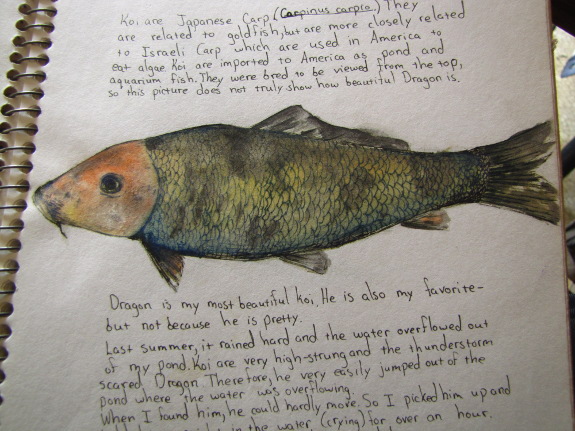 Koi are Japanese Carp (Carpinus carpio.) They
are related to goldfish, but are more closely related
to Israeli Carp which are used in America to
eat algae. Koi are imported to America as pond and
aquarium fish. They were bred to be viewed from the top,
so this picture does not truly show how beautiful Dragon is.
Dragon is my most beautiful koi. He is also my favorite-
but not because he is pretty.
Last summer, it rained hard and the water overflowed out
of my pond. Koi are very high-strung and the thunderstorm
scared Dragon. Therefore, he very easily jumped out of the
pond where the water was overflowing.
When I found him, he could hardly move. So I picked him up and
in the water (crying) for over an hour.